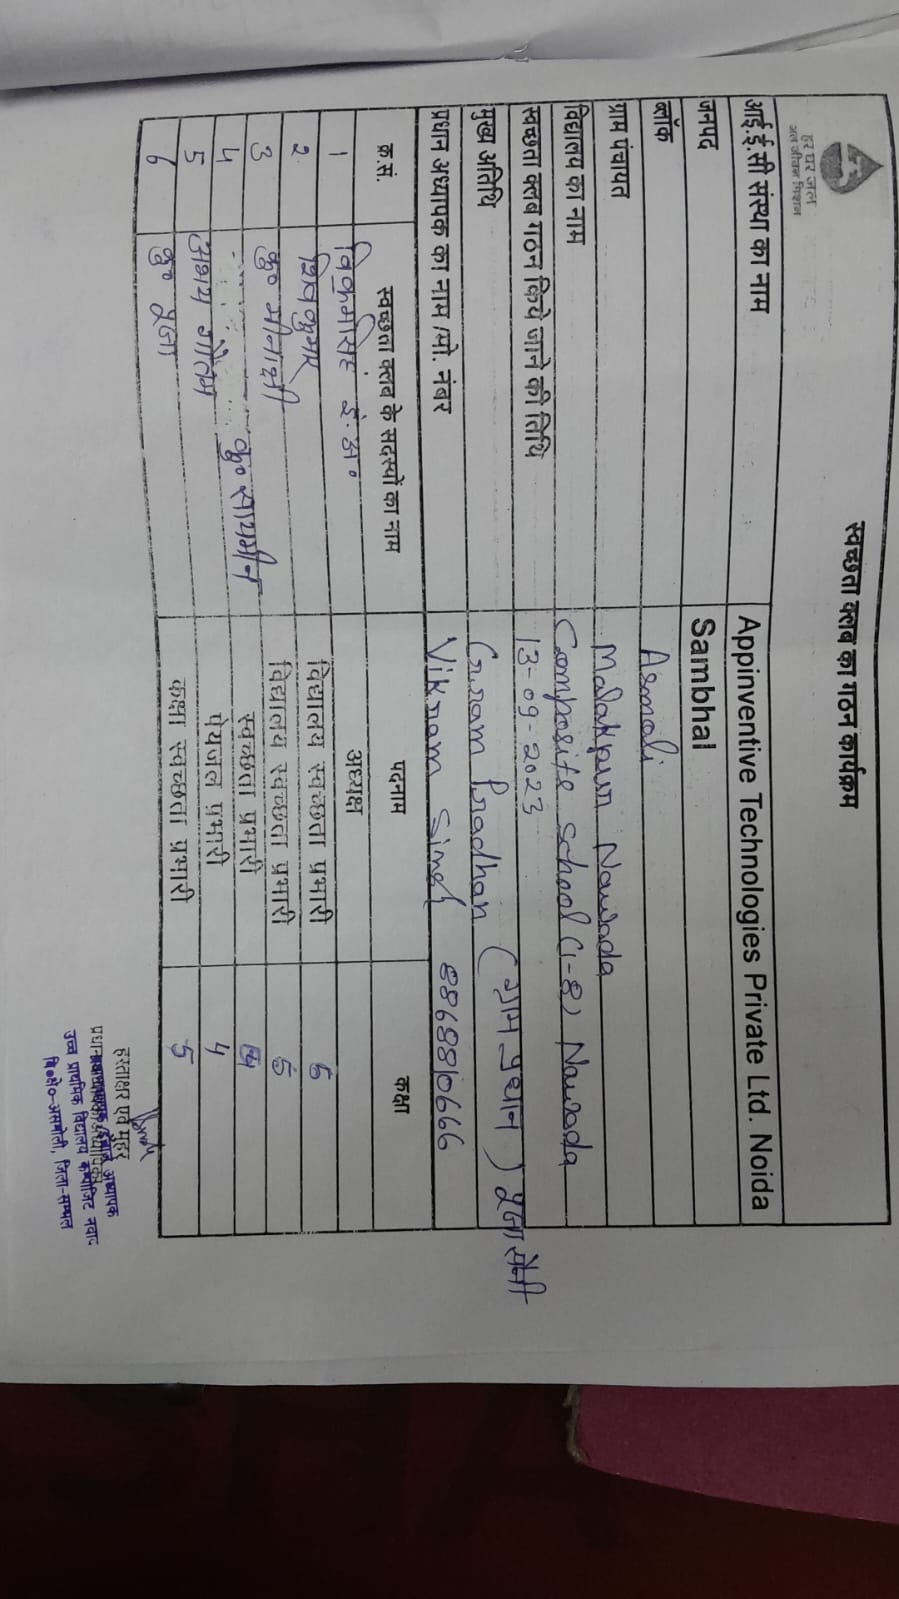 हर घर जल
जल जीवन मिशन
स्वच्छता क्लब का गठन कार्यक्रम
आई.ई.सी संस्था का नाम Appinventive Technologies Private Ltd. Noida
जनपद Sambhal
ब्लॉक Asmoli
ग्राम पंचायत Malakpur Nawada
विद्यालय का नाम Composite School (1-8) Nawada
स्वच्छता क्लब गठन किये जाने की तिथि 13-09-2023
मुख्य अतिथि Gram Pradhan (ग्राम प्रधान) पूजा सैनी
प्रधान अध्यापक का नाम /मो. नंबर Vikram Singh 8868810666
क.सं. स्वच्छता क्लब के सदस्यों का नाम पदनाम कक्षा
1 विक्रम सिंह इं.अ० अध्यक्ष
2 शिव कुमार विद्यालय स्वच्छता प्रभारी 6
3 कु० मीनाक्षी विद्यालय स्वच्छता प्रभारी 5
4 कु० सायमीन स्वच्छता प्रभारी
5 अभय गौतम पेयजल प्रभारी 4
6 कु० पूजा कक्षा स्वच्छता प्रभारी 5
हस्ताक्षर एवं मुहर
अध्यापक
उच्च प्राथमिक विद्यालय कम्पोजिट नवादा
वि०क्षे०-असमोली, जिला-सम्भल